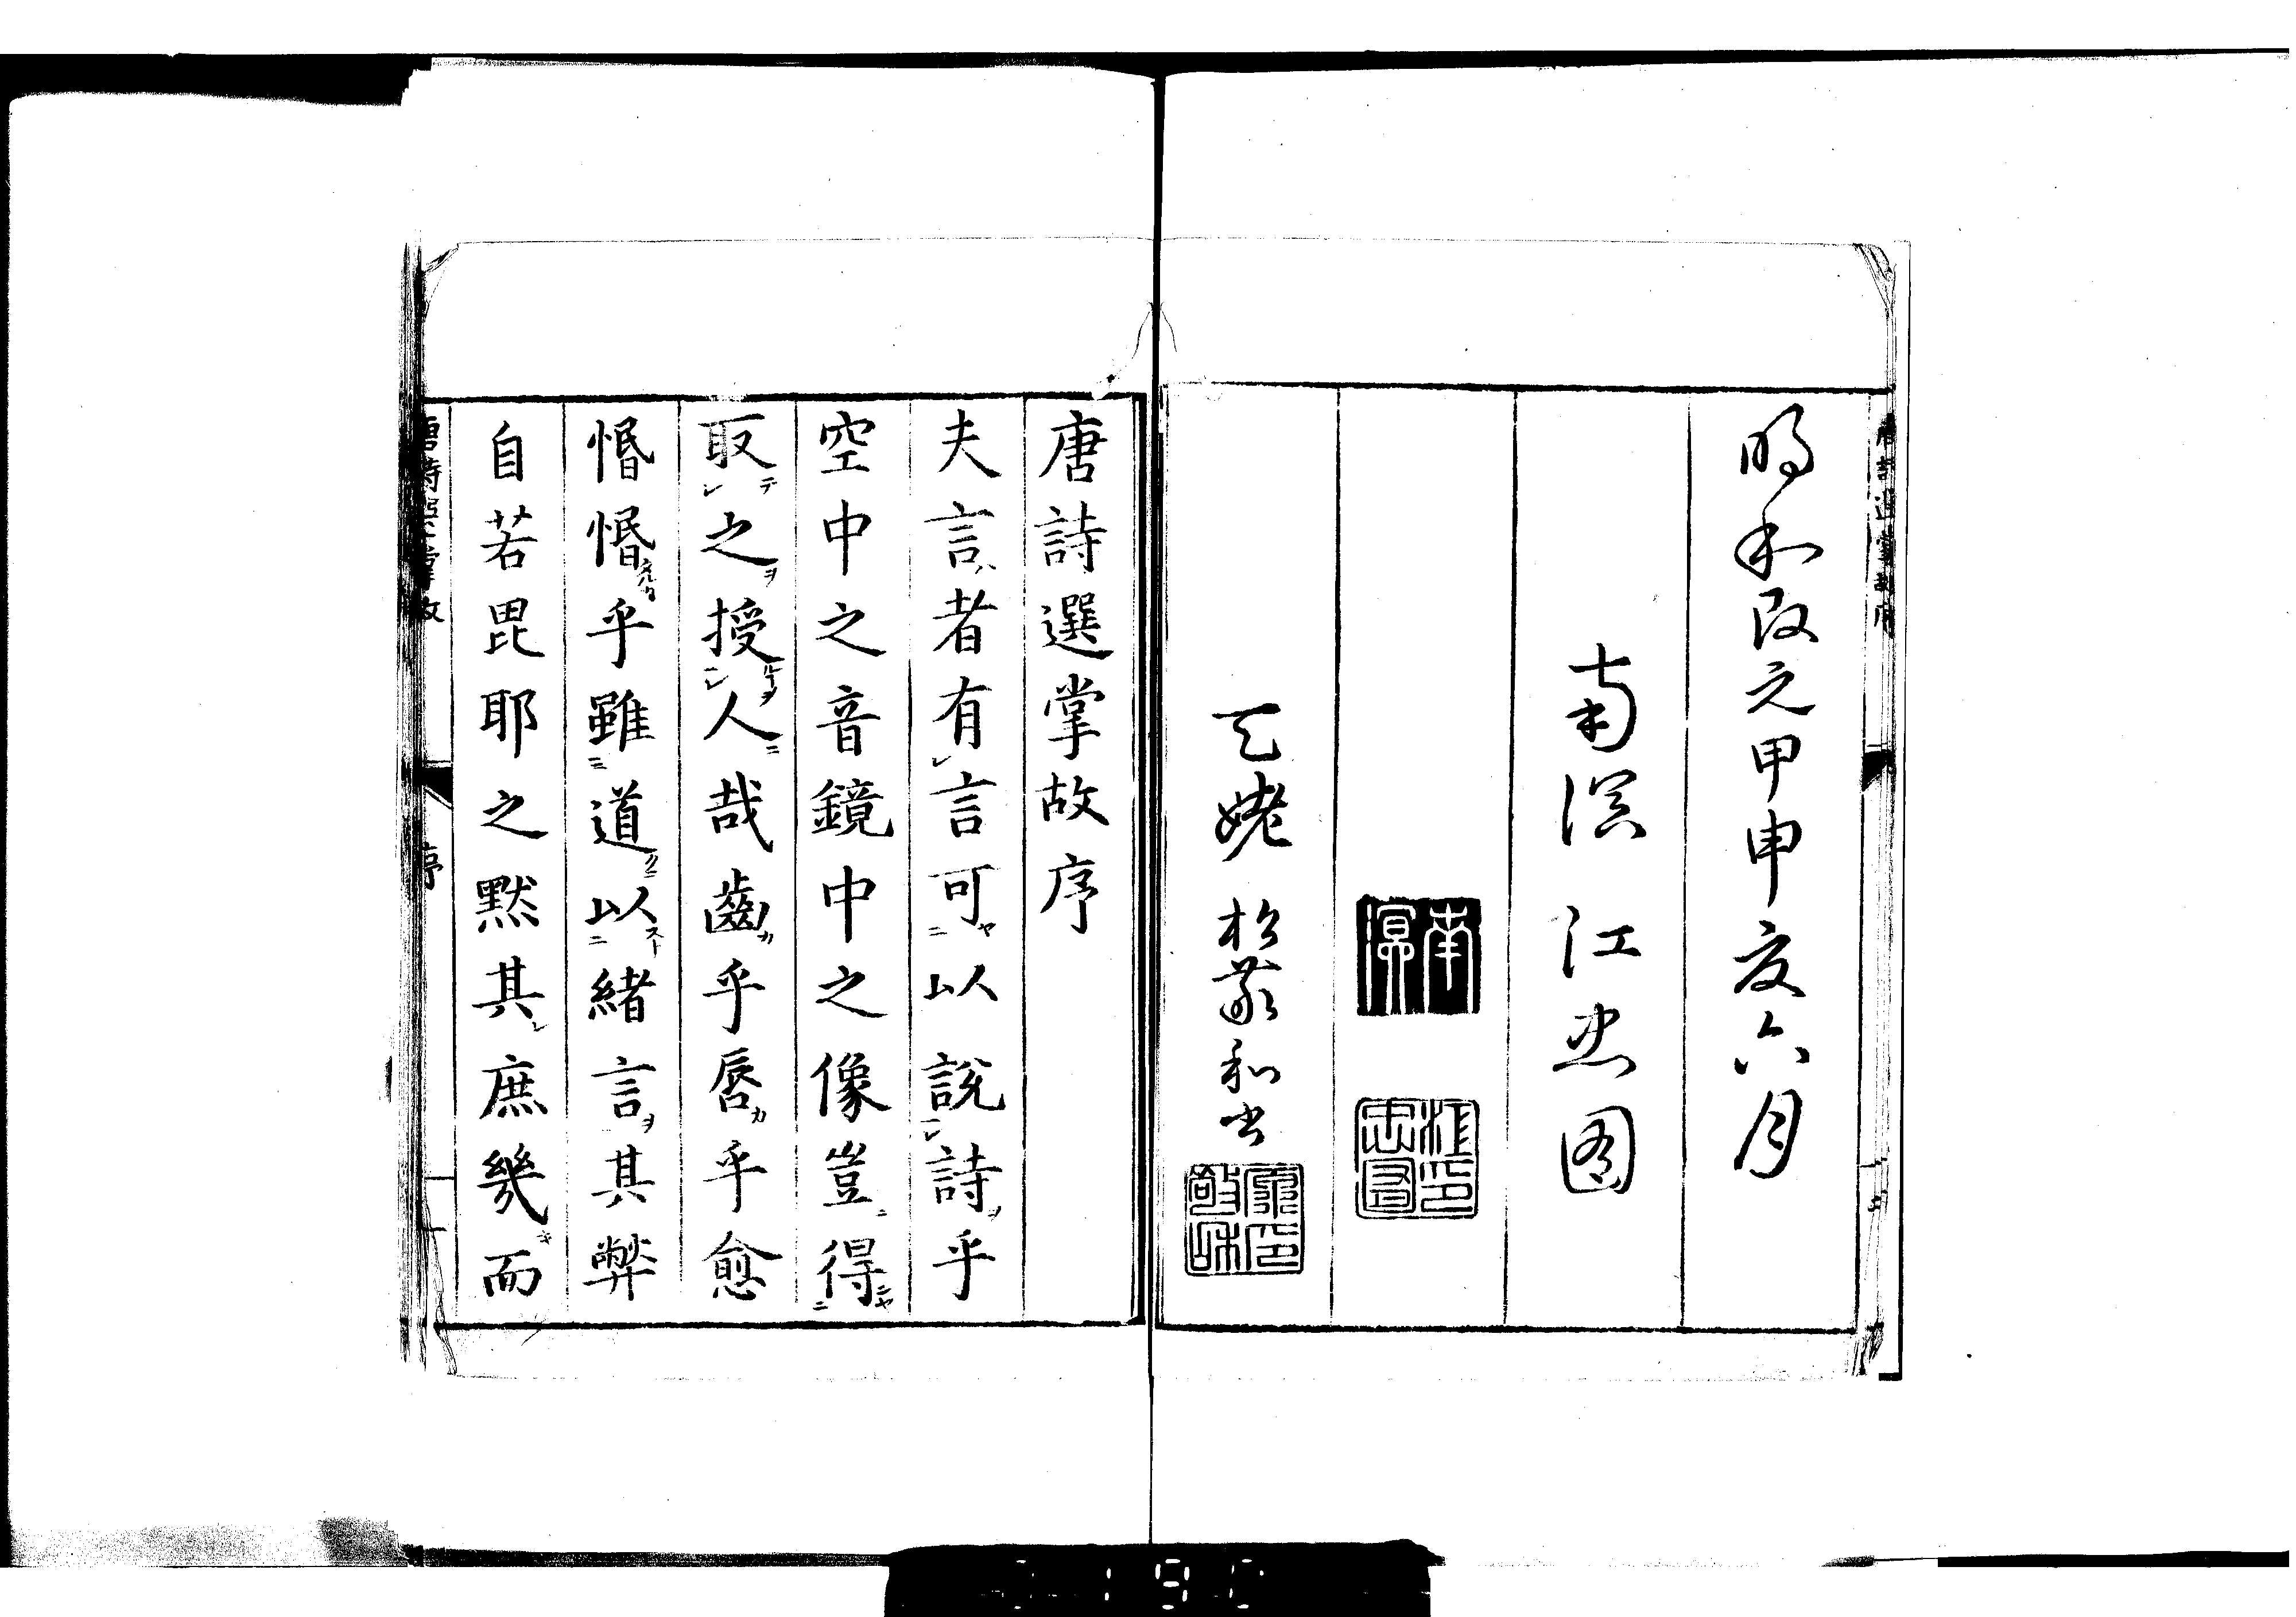 明和改元甲申夏六月
南溟江忠囹
南溟
江印忠囹
天姥 松敬和書
唐詩選掌故序
夫言者有言可以說詩乎
空中之音鏡中之像豈得
取之授人哉齒乎唇乎愈
惛惛乎雖道以緒言其弊
自若毘耶之黙其庶幾而
唐詩選掌故
序